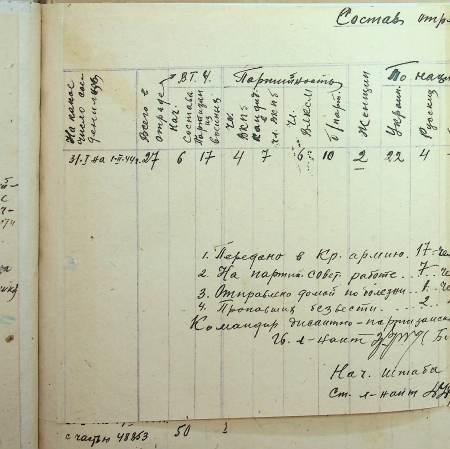 Состав отря
На какое число сос- денилиц
Всего в отряде
в т. ч.
Нач. состава
Партизан из военных
Партийность
Чл. ВКПб
Кандид. в чл. ВКПб
Чл. ВЛКСМ
б/парт.
Женщин
По наци
Украин.
Русских
31.I на 1-II-44 г. 27 6 17 4 7 6 10 2 22 4
1. Передано в Кр. армию. 17-че
2. На партий. совет. работе... 7-че
3. Отправлено домой по болезни.. 1-че
4. Пропавших без вести... 2
Командир десантно-партизанск
Гв. л-нант
Нач. штаба
Ст. л-нант
с частью 48853 50